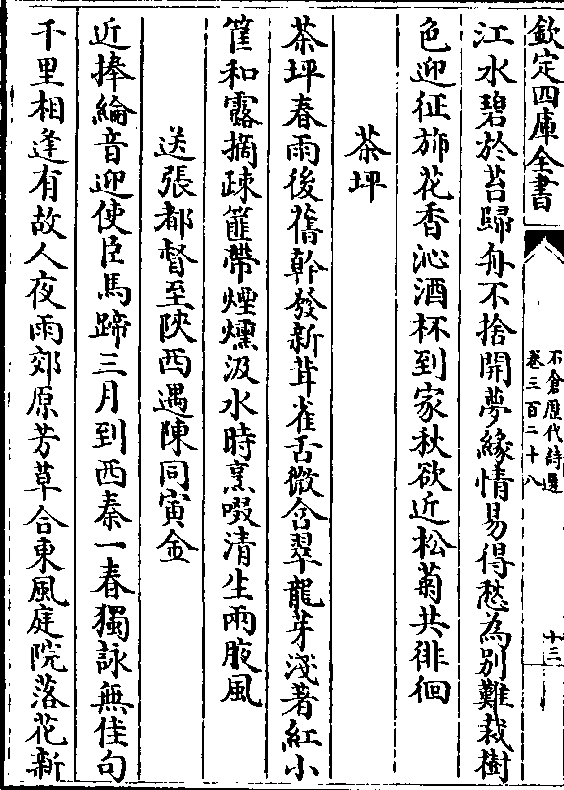 欽定四庫全書
石倉歷代詩選
卷三百二十八
十三
江水碧於苔歸舟不捨開夢緣情易得愁為別難裁樹
色迎征斾花香沁酒杯到家秋欲近松菊共徘徊
茶坪
茶坪春雨後舊幹發新茸雀舌微含翠龍芽淺著紅小
筐和露摘疎籠帶煙燻汲水時烹啜清生兩腋風
送張都督至陜西遇陳同寅金
近捧綸音迎使臣馬蹄三月到西秦一春獨詠無佳句
千里相逢有故人夜雨郊原芳草合東風庭院落花新